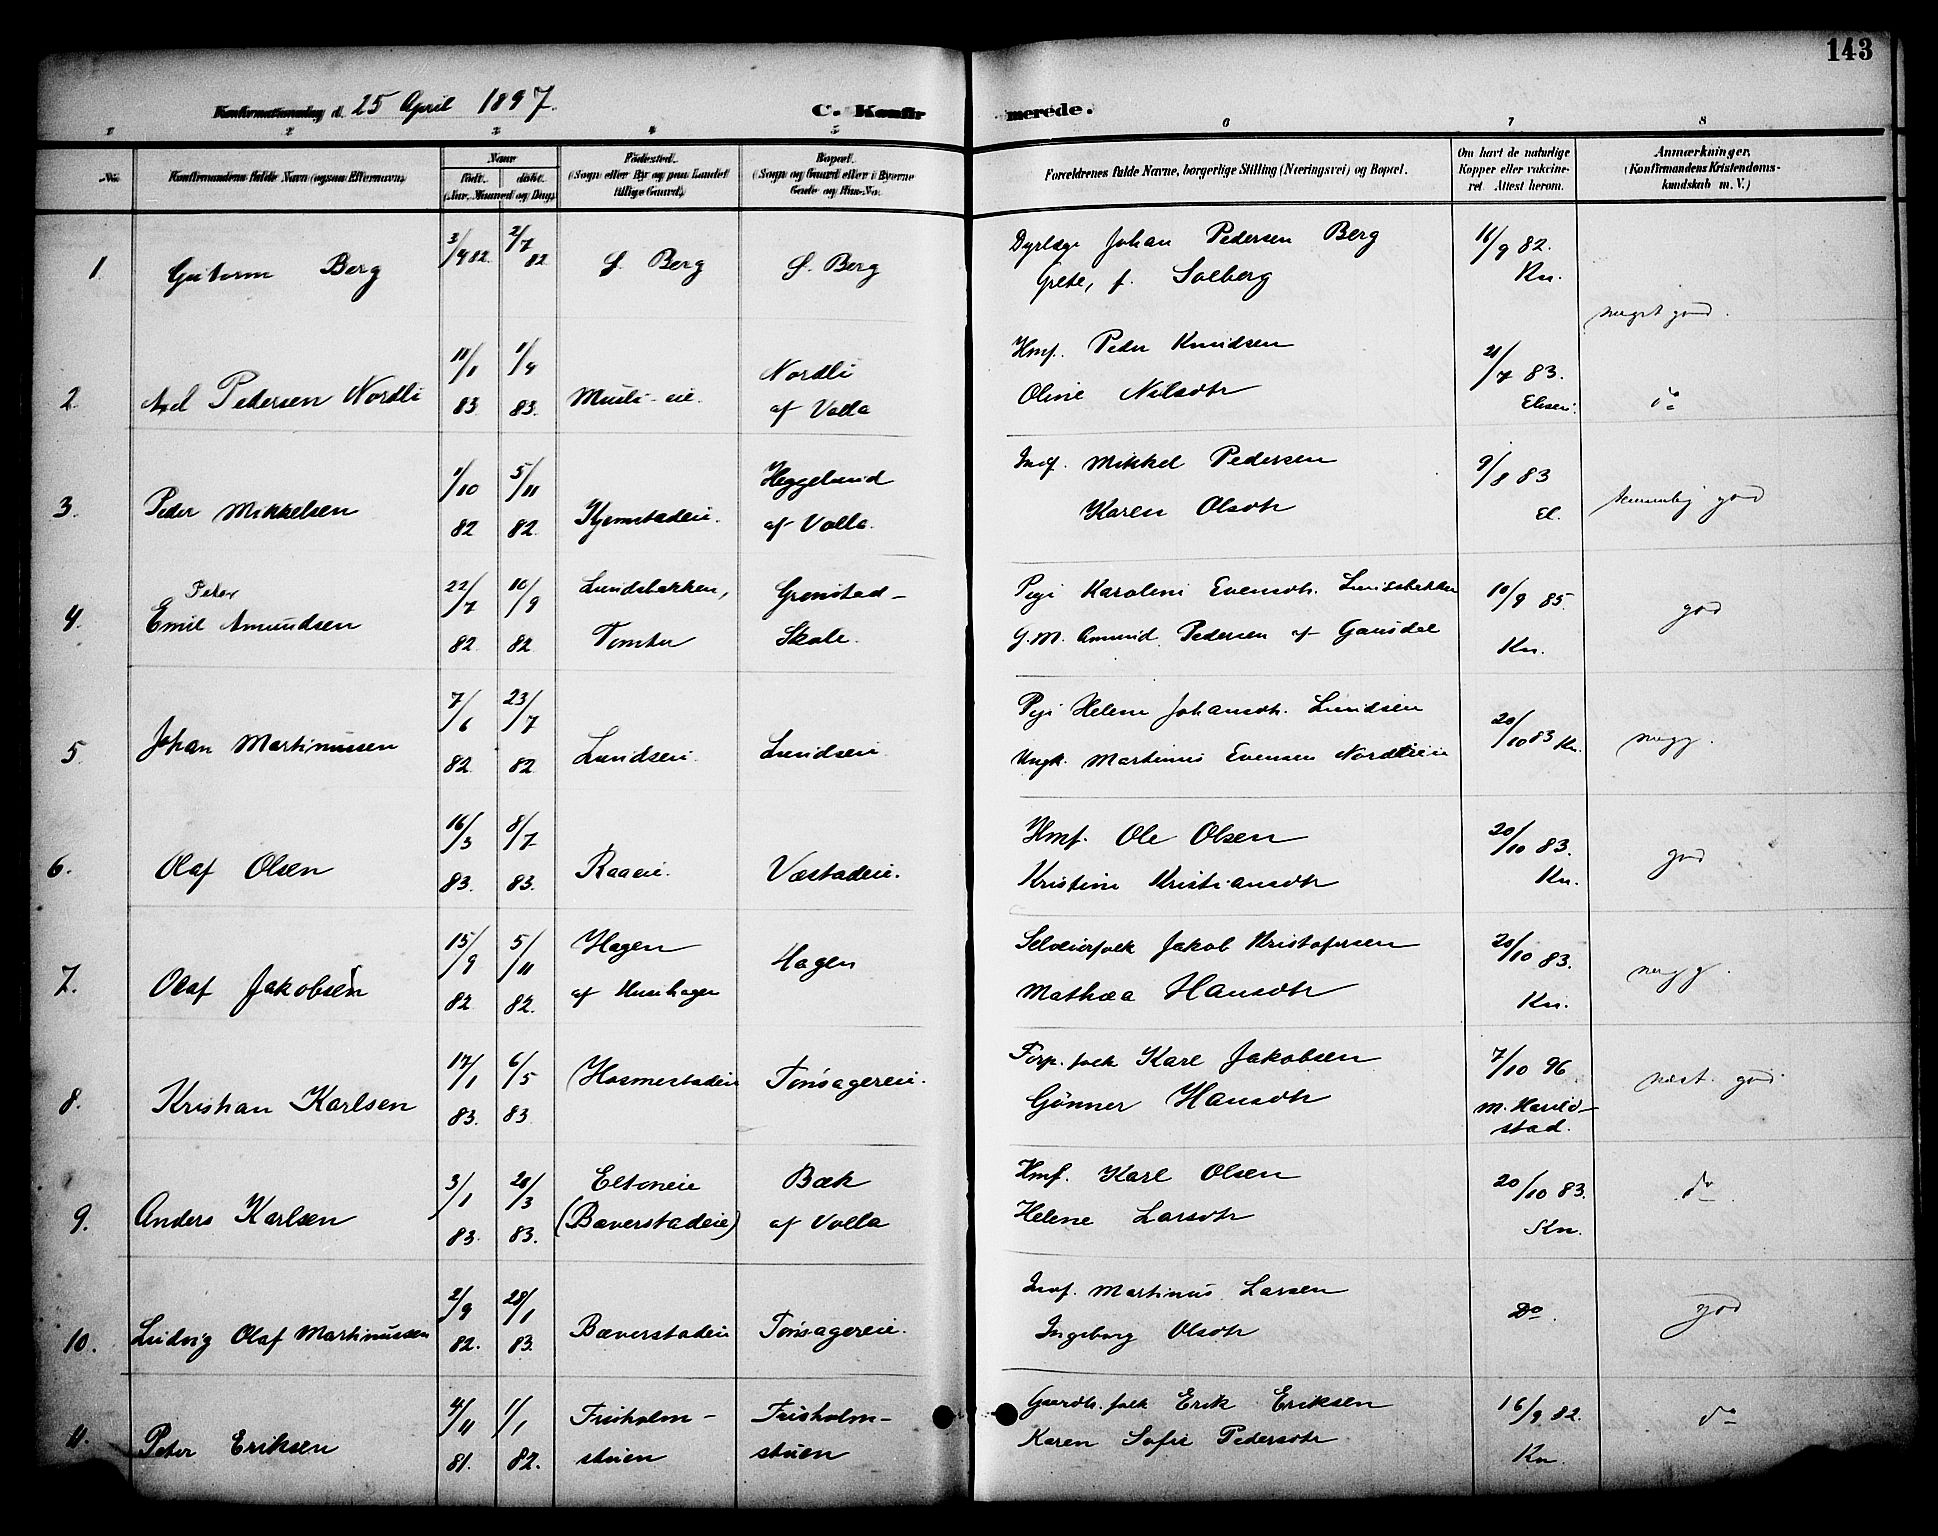 143
Konfirmationsdag d. 25 April 1897.
C. Konfir merede.
1 2 3 4 5 6 7 8
No. Konfirmandens fulde Navn (ogsaa Efternavn). Naar født. døbt. (Aar, Maaned og Dag). Fødested. (Sogn eller By og paa Landet tillige Gaard). Bopæl. (Sogn og Gaard eller i Byerne Gade og Hus-No.
Forældrenes fulde Navne, borgerlige Stilling (Næringsvei) og Bopæl. Om havt de naturlige Kopper eller vakcineret. Attest herom. Anmærkninger, (Konfirmandens Kristendomskundskab m. V.)
1. Guttorm Berg 3/4 82 2/7 82 S. Berg S. Berg
Dyrlæge Johan Pedersen Berg 16/9 82.
Grete, f. Solberg Kn. meget god.
2. Axel Pedersen Nordli 11/1 83 1/4 83. Musli-eie. Nordli af Volla
Hmf. Peder Knudsen 21/7 83.
Oline Nilsdtr do
3. Peder Mikkelsen 1/10 82 5/11 82. Kjemstadeie. Heggelund af Volla.
Indf. Mikkel Pedersen 9/8 83
Karen Olsdtr El. temmelig god
4. Emil Peter Amundsen 22/7 82 10/9 82 Lundsbakken, Tomter Grønstad-Skole.
Pige Karoline Evensdtr. Lundsbakken 10/9 85.
G. M. Amund Pedersen af Gausdal Kn. god
5 Johan Martinussen 7/6 82. 23/7 82 Lundseie. Lundseie
Pige Helene Johansdtr. Lundseie 20/10 83 Kn.
Ungk. Martinus Evensen Nordlieie megg.
6. Olaf Olsen 16/3 83. 8/7 83. Raaeie. Væstadeie.
Hmf. Ole Olsen 20/10 83.
Kristine Kristiansdtr Kn. god
7. Olaf Jakobsen 15/9 82 5/11 82. Hagen Hagen
Selveierfolk Jakob Kristofersen 20/10 83.
Mathea Hansdtr Kn. megg.
8. Kristian Karlsen 17/1 83. 6/5 83 Hosmestadeie Tonsagereie.
Torp. folk Karl Jakobsen 7/10 96
Gönner Hansdtr M. Haraldstad. næst. god.
9. Anders Karlsen 3/1 83. 28/3 83. Eltoneie (Bæverstadeie) Bæk af Volla
Hmf. Karl Olsen 20/10 83.
Helene Larsdtr Kn. do
10. Ludvig Olaf Martinussen 2/9 82. 28/1 83. Bæverstadeie Tonsagereie.
Indf. Martinus Larsen Do.
Ingeborg Olsdtr god
11. Peter Eriksen 4/11 81. 1/1 82. Frisholm-stuen Frisholm-stuen
Gaardb. folk Erik Eriksen 16/9 82.
Karen Sofie Pedersdtr Kn. do